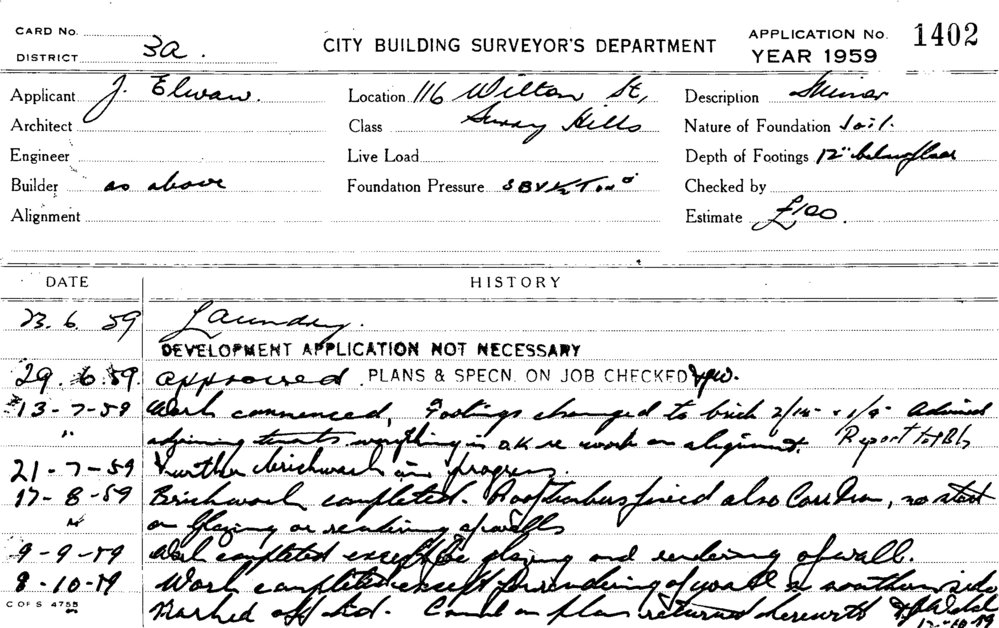 CARD No.
DISTRICT 3a.
CITY BUILDING SURVEYOR'S DEPARTMENT
APPLICATION No. 1402
YEAR 1959
Applicant J. Elwaw.
Location 116 Wilton St,
Description Minor
Architect
Class Surry Hills
Nature of Foundation Soil.
Engineer
Live Load
Depth of Footings 12" below floor
Builder as above
Foundation Pressure
Checked by
Alignment
Estimate £100.
DATE HISTORY
23.6.59 Laundry.
DEVELOPMENT APPLICATION NOT NECESSARY
29.6.59. approved. PLANS & SPECN. ON JOB CHECKED
13-7-59 Work commenced, Footings changed to brick Advised
" adjoining tenants everything is o.k. re work on alignment. Report to
21-7-59 Further brickwork in progress.
17-8-59 Brickwork completed. Roof timbers fixed also Corr Iron, no start
" on glazing or rendering of walls
9-9-59 Work completed except for glazing and rendering of wall.
8-10-59 Work completed except for rendering of wall on southern side
C OF S 4755 Marked off Card on plan returned herewith
12-10-59